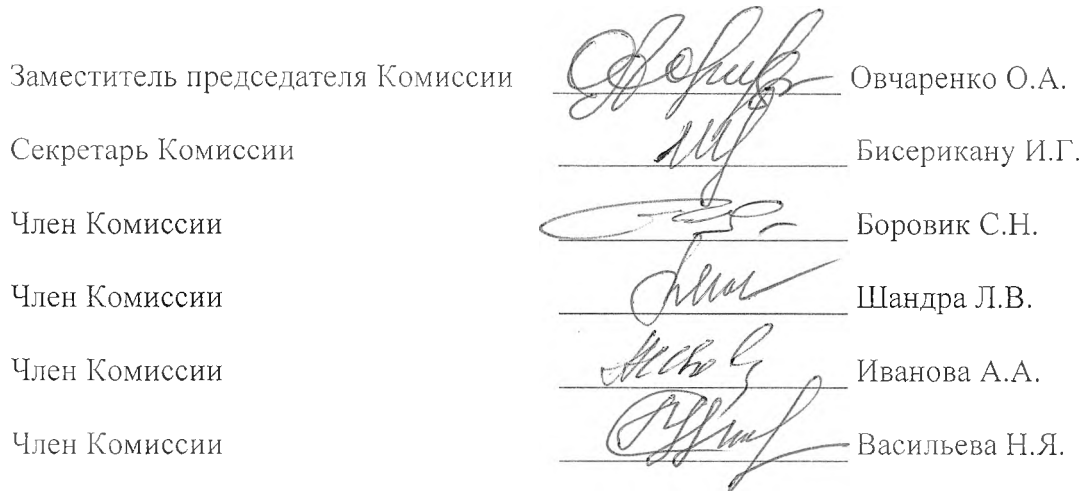 Заместитель председателя Комиссии Овчаренко О.А.
Секретарь Комиссии Бисерикану И.Г.
Член Комиссии Боровик С.Н.
Член Комиссии Шандра Л.В.
Член Комиссии Иванова А.А.
Член Комиссии Васильева Н.Я.